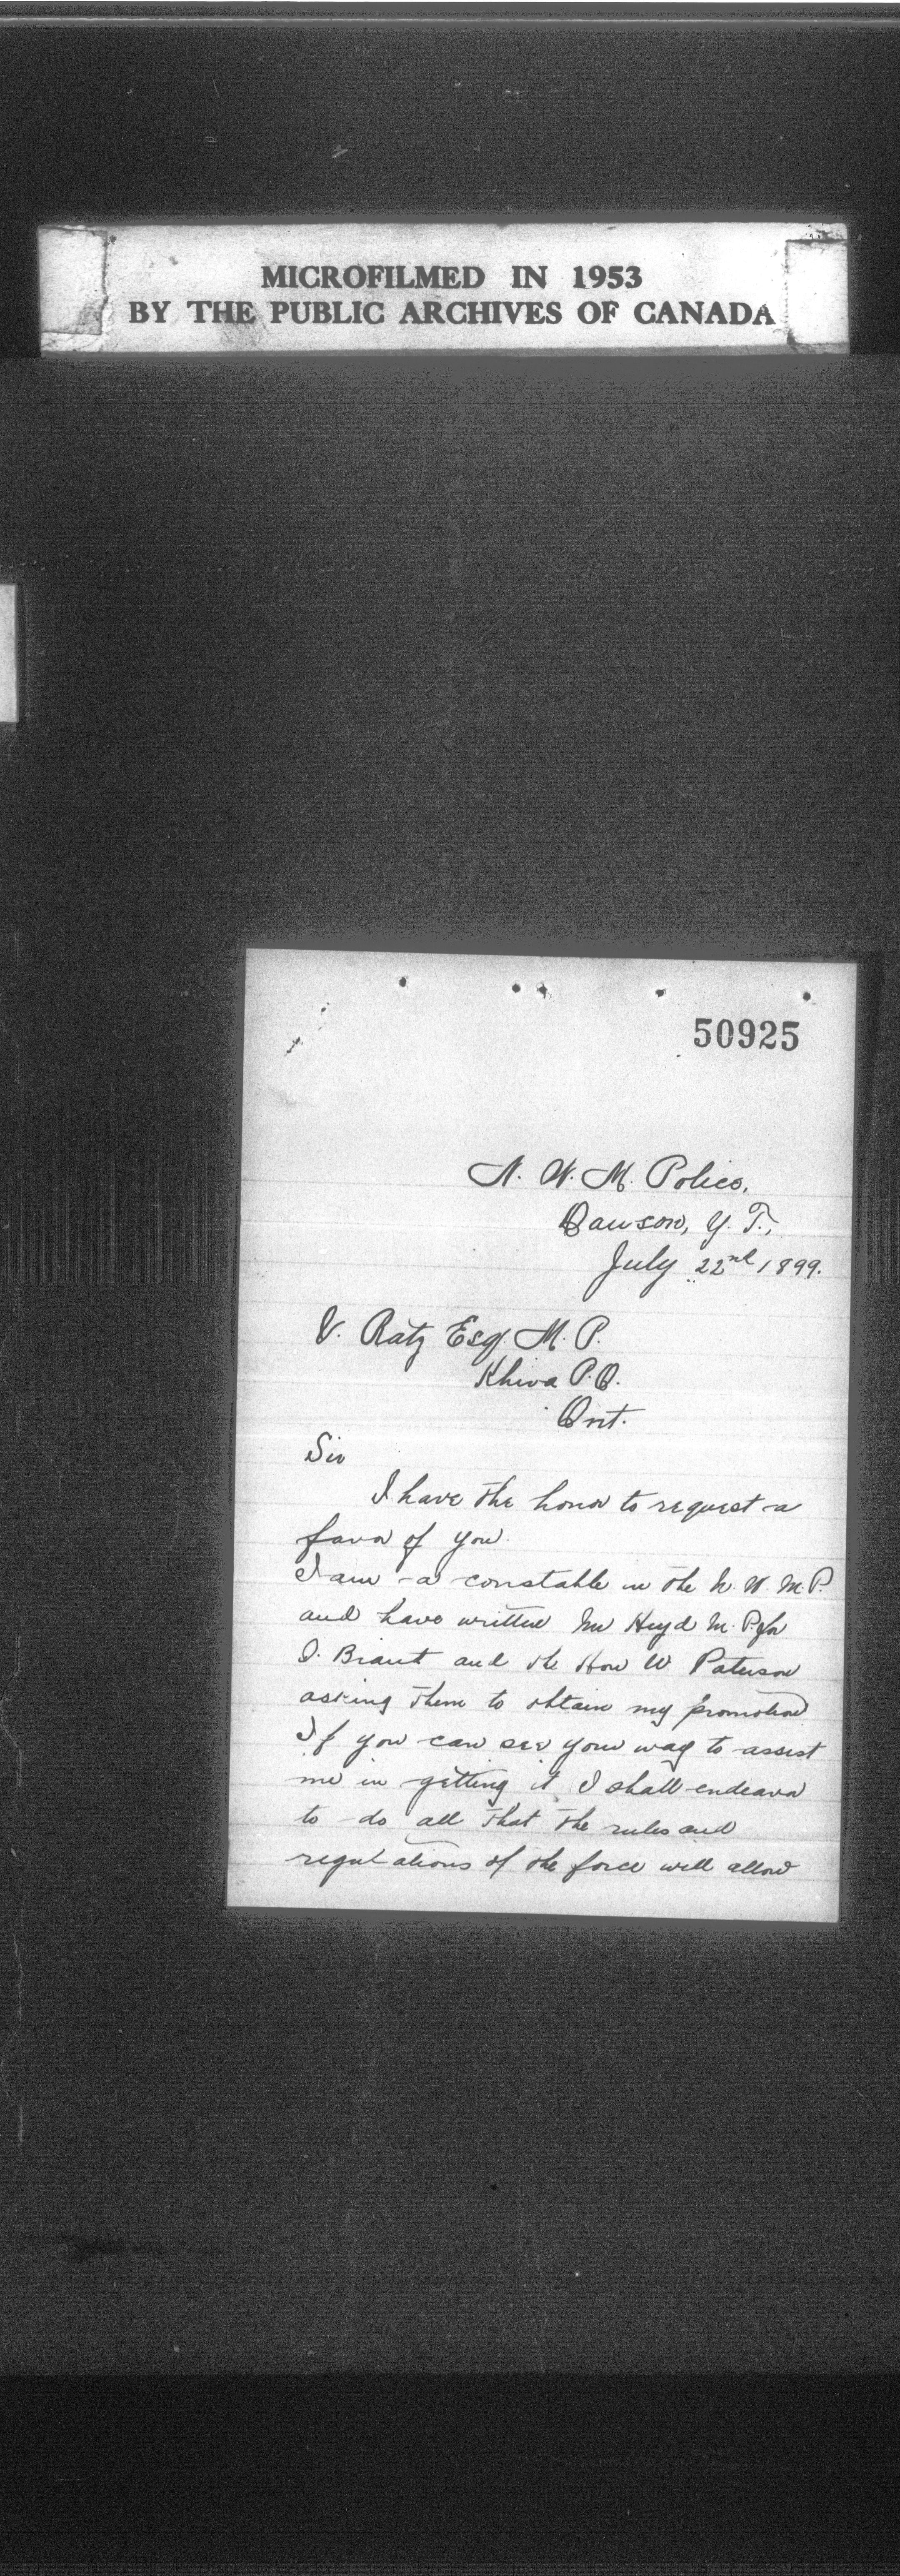 MICROFILMED IN 1953
BY THE PUBLIC ARCHIVES OF CANADA
50925
N. W. M. Police,
Dawson, Y. T.,
July 22nd 1899.
V. Ratz Esq. M. P.
Khiva P.O.
Ont.
Sir
I have the honor to request a
favor of you.
I am a constable in the N. W. M. P.
and have written Mr Heyd M. P. for
S. Brant and the Hon W Paterson
asking them to obtain my promotion
If you can see your way to assist
me in getting it I shall endeavor
to do all that the rules and
regulations of the force will allow